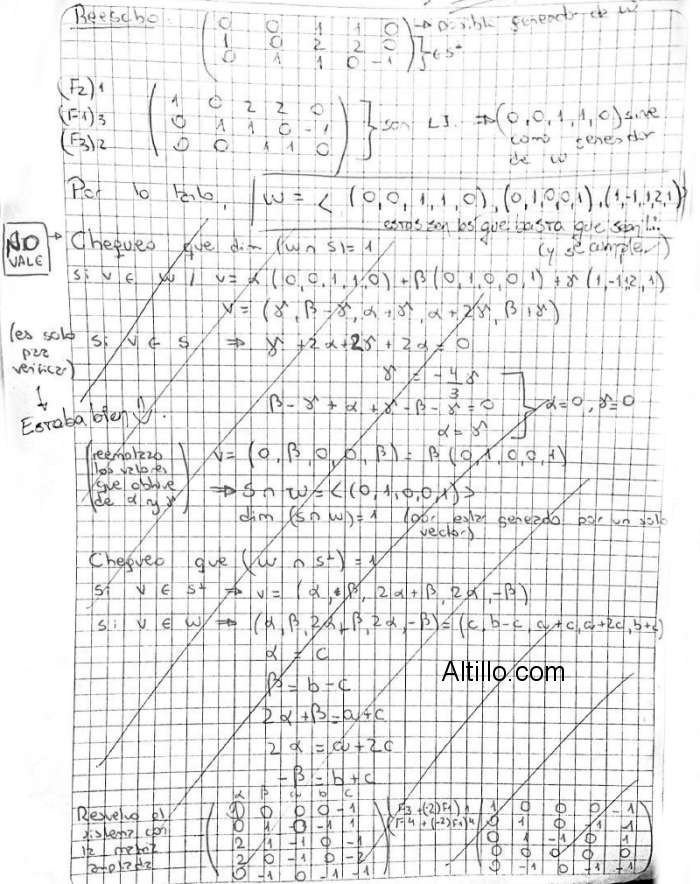 Reescribo:
( 0 0 1 1 0 ) → posible generador de W
( 1 0 2 2 0 )
( 0 1 1 0 -1 ) } ∈ S⊥
(F2)1 ( 1 0 2 2 0 )
(F1)3 ( 0 1 1 0 -1 ) } son LI. ⇒ (0,0,1,1,0) sirve
(F3)2 ( 0 0 1 1 0 ) como generador
de W
Por lo tanto, W = < (0,0,1,1,0), (0,1,0,0,1), (1,-1,1,2,1)>
estos son los que basta que son LI
(y se cumple)
NO VALE → Chequeo que dim (W ∩ S) = 1
si v ∈ W / v = α (0,0,1,1,0) + β (0,1,0,0,1) + γ (1,-1,1,2,1)
v = (γ, β-γ, α+γ, α+2γ, β+γ)
(es solo para verificar)
si v ∈ S ⇒ γ + 2α + 2γ + 2α = 0
γ = -4/3 γ
↓
Estaba bien
β - γ + α + γ - β - γ = 0 } α = 0, γ = 0
α = γ
(reemplazo los valores que obtuve de α y γ)
v = (0, β, 0, 0, β) = β (0,1,0,0,1)
⇒ S ∩ W = <(0,1,0,0,1)>
dim (S ∩ W) = 1 (por estar generado por un solo
vector)
Chequeo que (W ∩ S⊥) = 1
si v ∈ S⊥ ⇒ v = (α, β, 2α+β, 2α, -β)
si v ∈ W ⇒ (α, β, 2α+β, 2α, -β) = (c, b-c, a+c, a+2c, b+c)
α = c
Altillo.com
β = b - c
2α + β = a + c
2α = a + 2c
-β = b + c
Resuelvo el sistema con la matriz ampliada
α β a b c
( 1 0 0 0 -1 ) (F3+(-2)F1) ( 1 0 0 0 -1 )
( 0 1 0 -1 1 ) (F4+(-2)F1)4 ( 0 1 0 -1 1 )
( 2 1 -1 0 -1 ) ( 0 1 -1 0 1 )
( 2 0 -1 0 -2 ) ( 0 0 0 0 )
( 0 -1 0 -1 -1 ) ( 0 -1 0 -1 -1 )